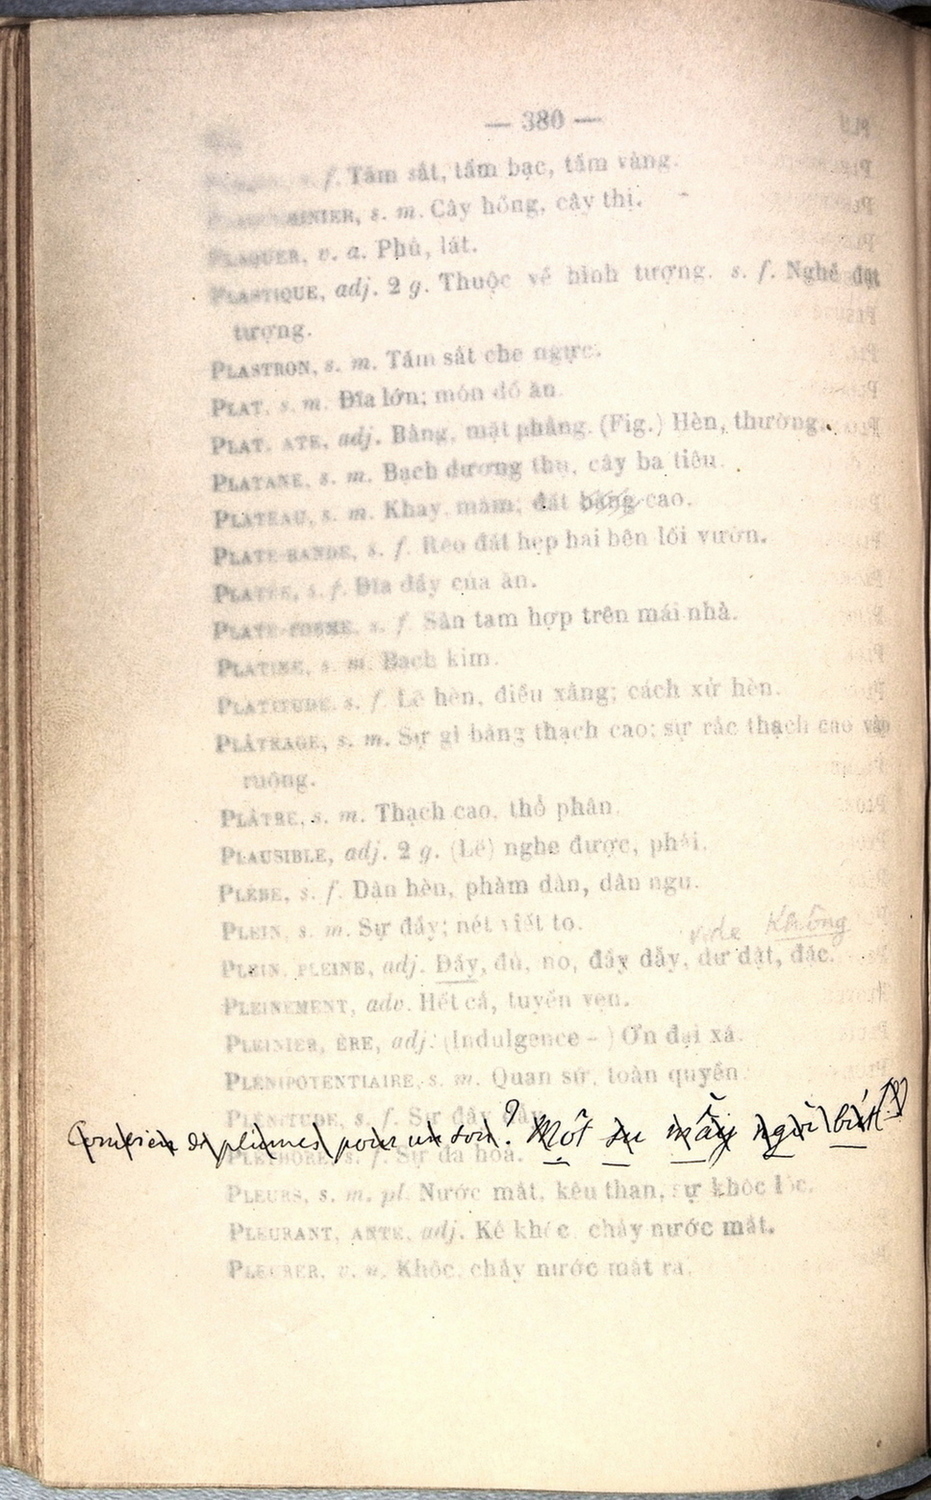 — 380 —
f. Tấm sắt, tấm bạc, tấm vàng.
s. m. Cây hồng, cây thị.
PLAQUER, v. a. Phủ, lát.
PLASTIQUE, adj. 2 g. Thuộc về hình tượng. s. f. Nghề đặt
tượng.
PLASTRON, s. m. Tấm sắt che ngực.
PLAT, s. m. Đĩa lớn; món đồ ăn.
PLAT, ATE, adj. Bằng, mặt phẳng. (Fig.) Hèn, thường.
PLATANE, s. m. Bạch dương thụ, cây ba tiêu.
PLATEAU, s. m. Khay, mâm; đất bằng cao.
PLATE-BANDE, s. f. Rẻo đất hẹp hai bên lối vườn.
PLATÉE, s. f. Đĩa đầy của ăn.
PLATE-FORME, s. f. Sân tam hợp trên mái nhà.
PLATINE, s. m. Bạch kim.
PLATITUDE, s. f. Lẽ hèn, điều xằng; cách xử hèn.
PLÂTRAGE, s. m. Sự gì bằng thạch cao; sự rắc thạch cao vào
ruộng.
PLÂTRE, s. m. Thạch cao, thổ phấn.
PLAUSIBLE, adj. 2 g. (Lẽ) nghe được, phải.
PLÈBE, s. f. Dân hèn, phàm dân, dân ngu.
PLEIN, s. m. Sự đầy; nét viết to.
vide Không
PLEIN, PLEINE, adj. Đầy, đủ, no, đầy dẫy, dư dật, đặc.
PLEINEMENT, adv. Hết cả, tuyền vẹn.
PLEINIER, ÈRE, adj. (Indulgence - ) Ơn đại xá.
PLÉNIPOTENTIAIRE, s. m. Quan sứ, toàn quyền.
PLÉNITUDE, s. f. Sự đầy dẫy.
Combien de plumes pour un sou? Một su mấy ngòi bút (?)
PLÉTHORE, s. f. Sự đa hoả.
PLEURS, s. m. pl. Nước mắt, kêu than, sự khóc lóc.
PLEURANT, ANTE, adj. Kẻ khóc, chảy nước mắt.
PLEURER, v. n. Khóc, chảy nước mắt ra.